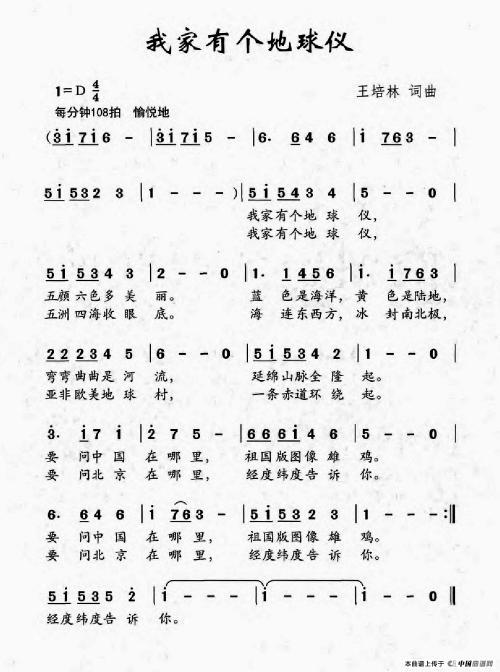 我家有个地球仪
1=D 4/4
王培林 词曲
每分钟108拍 愉悦地
(3̇ i 7 i 6 - | 3̇ i 7 i 5 - | 6· 6 4 6 | i 7 6 3 - |
5 i 5 3 2 3 | 1 - - - ) | 5 i 5 4 3 4 | 5 - - 0 |
我家有个地 球 仪,
我家有个地 球 仪,
5 i 5 3 4 3 | 2 - - 0 | 1· 1 4 5 6 | i· i 7 6 3 |
五颜六色多 美 丽。 蓝 色是海洋, 黄 色是陆地,
五洲四海收 眼 底。 海 连东西方, 冰 封南北极,
2 2 2 3 4 5 | 6 - - 0 | 5 i 5 3 5 2 | 1 - - 0 |
弯弯曲曲是 河 流, 廷绵山脉全 隆 起。
亚非欧美地 球 村, 一条赤道环 绕 起。
3̇· i 7 i | 2̇ 7 5 - | 6 6 6 i 4 6 | 5 - - 0 |
要 问中 国 在 哪 里, 祖国版图像 雄 鸡。
要 问北 京 在 哪 里, 经度纬度告 诉 你。
6· 6 4 6 | i 7 6 3 - | 5 i 5 3 2 3 | 1 - - - :‖
要 问中 国 在 哪 里, 祖国版图像 雄 鸡。
要 问北 京 在 哪 里, 经度纬度告 诉 你。
5 i 5 3 5 2̇ | i - - - | i - - - | i - - 0 ‖
经度纬度告 诉 你。
本曲谱上传于 中国曲谱网